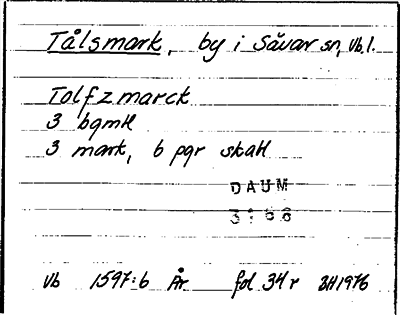 Tålsmark, by i Sävar sn, Vb.l.
Tolfzmarck
3 bgmH
3 mark, 6 pgr skatt
DAUM
3168
Vb 1597:6 År fol 34 r BH1976